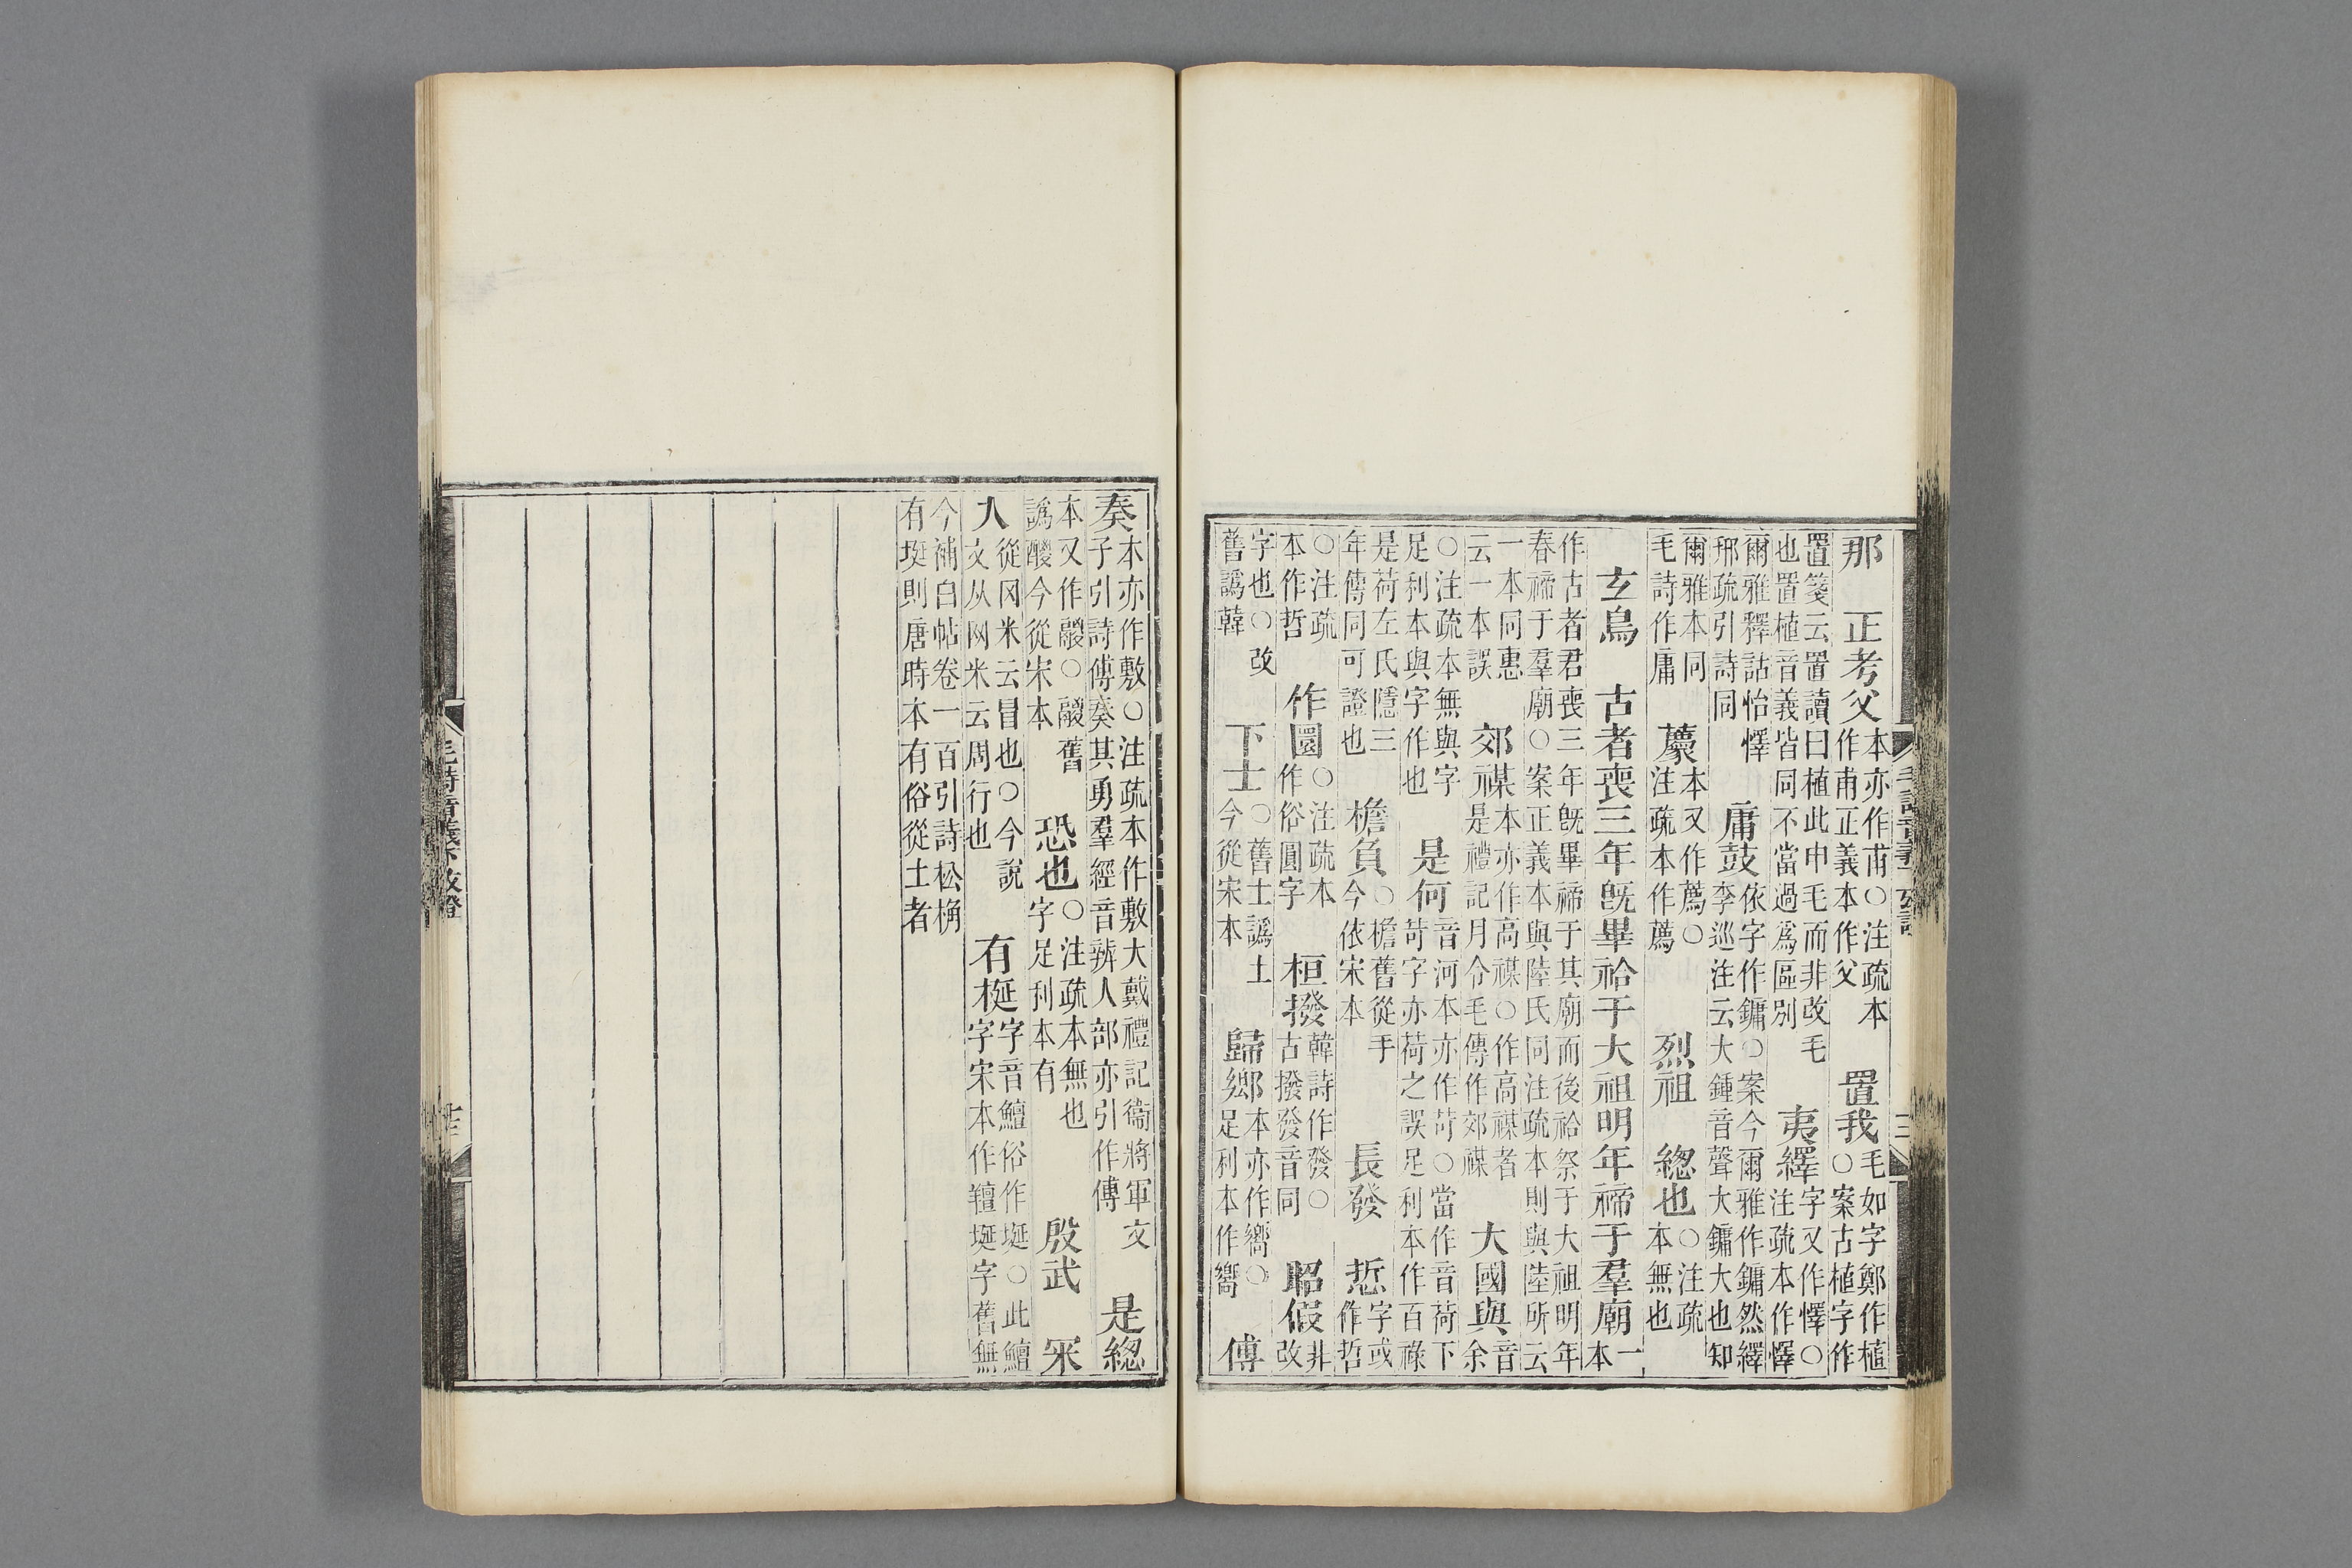 那　正考父本亦作甫○注疏本作甫正義本作父　置我毛如字鄭作植○案古植字作
置箋云置讀曰植此申毛而非改毛也置植音義皆同不當過爲區別　夷繹字又作懌○注疏本作懌
爾雅釋詁怡懌邢疏引詩同　庸鼓依字作鏞○案今爾雅作鏞然繹李巡注云大鍾音聲大鏞大也知
爾雅本同毛詩作庸　藨本又作薦○注疏本作薦　烈祖　總也○注疏本無也
玄鳥　古者喪三年旣畢祫于大祖明年禘于羣廟一本
作古者君喪三年旣畢禘于其廟而後祫祭于大祖明年春禘于羣廟○案正義本與陸氏同注疏本則與陸所云
一本同惠云一本誤　郊禖本亦作高禖○作高禖者是禮記月令毛傳作郊禖　大國與音余
○注疏本無與字足利本與字作也　是何音河本亦作苛○當作音荷下苛字亦荷之誤足利本作百祿
是荷左氏隱三年傳同可證也　檐負○檐舊從手今依宋本　長發　悊字或作哲
○注疏本作哲　作圜○注疏本作俗圓字　桓撥韓詩作發○古撥發音同　昭假非改
字也○改舊譌韓　下士○舊士譌土今從宋本　歸鄉本亦作嚮○足利本作嚮　傅
奏本亦作敷○注疏本作敷大戴禮記衞將軍文子引詩傅奏其勇羣經音辨人部亦引作傅　是總
本又作鬷○鬷舊譌醲今從宋本　恐也○注疏本無也字足利本有　殷武　罙
入從冈米云冒也○今說文从网米云周行也　有梴字音鱣俗作埏○此鱣字宋本作羶埏字舊無
今補白帖卷一百引詩松桷有埏則唐時本有俗從土者
毛詩音義下攷證　十三